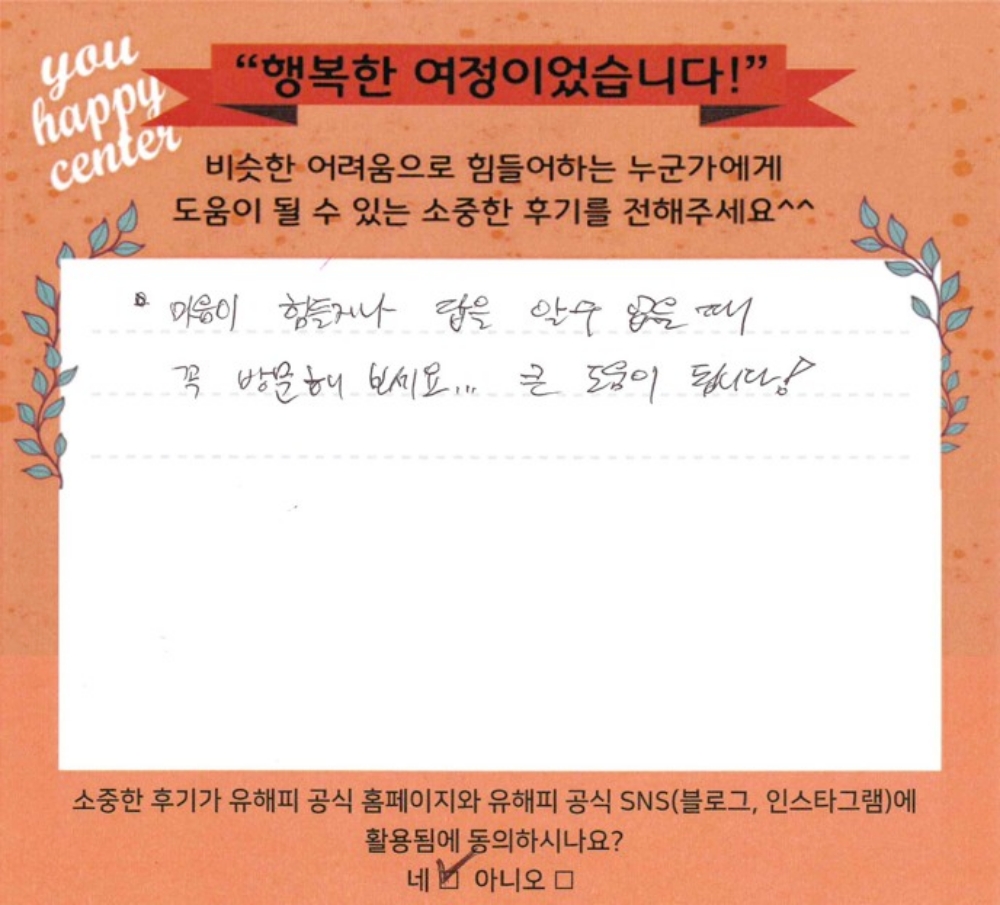 you
happy
center
“행복한 여정이었습니다!”
비슷한 어려움으로 힘들어하는 누군가에게
도움이 될 수 있는 소중한 후기를 전해주세요^^
마음이 힘들거나 답을 알수 없을 때
꼭 방문해 보세요... 큰 도움이 됩니다!
소중한 후기가 유해피 공식 홈페이지와 유해피 공식 SNS(블로그, 인스타그램)에
활용됨에 동의하시나요?
네 ☑ 아니오 □